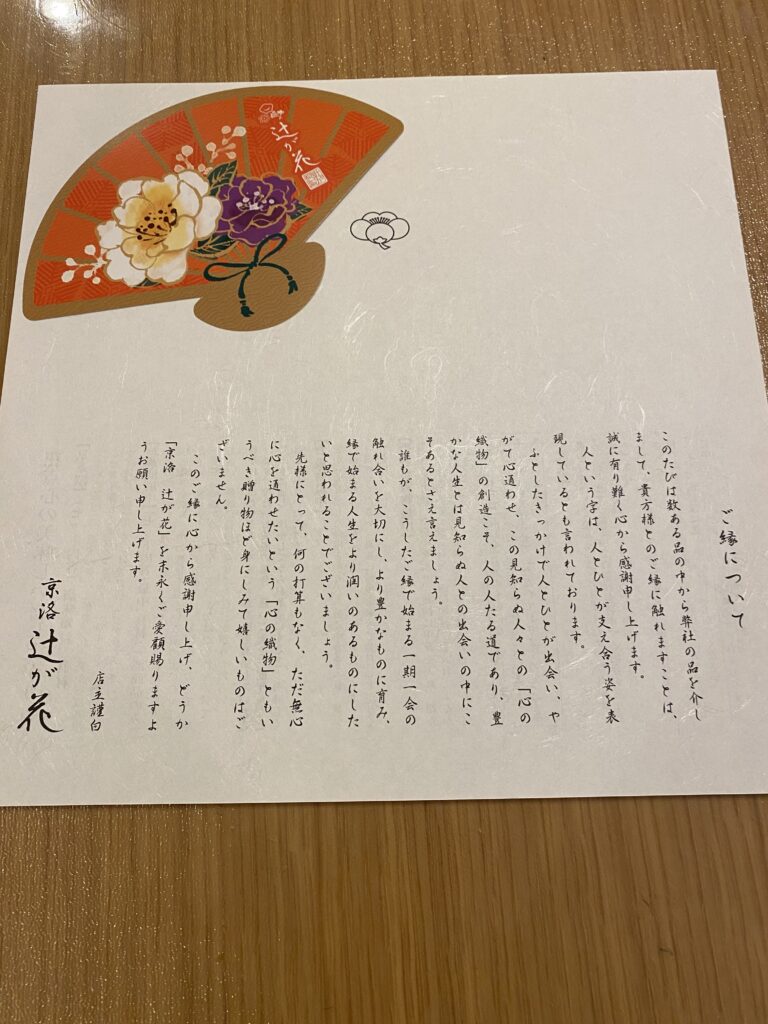 辻が花
ご縁について
このたびは数ある品の中から弊社の品を介し
まして、貴方様とのご縁に触れますことは、
誠に有り難く心から感謝申し上げます。
人という字は、人とひとが支え合う姿を表
現しているとも言われております。
ふとしたきっかけで人とひとが出会い、や
がて心通わせ、この見知らぬ人々との「心の
織物」の創造こそ、人の人たる道であり、豊
かな人生とは見知らぬ人との出会いの中にこ
そあるとさえ言えましょう。
誰もが、こうしたご縁で始まる一期一会の
触れ合いを大切にし、より豊かなものに育み、
縁で始まる人生をより潤いのあるものにした
いと思われることでございましょう。
先様にとって、何の打算もなく、ただ無心
に心を通わせたいという「心の織物」ともい
うべき贈り物ほど身にしみて嬉しいものはご
ざいません。
このご縁に心から感謝申し上げ、どうか
「京洛 辻が花」を末永くご愛顧賜りますよ
うお願い申し上げます。
店主謹白
京洛 辻が花